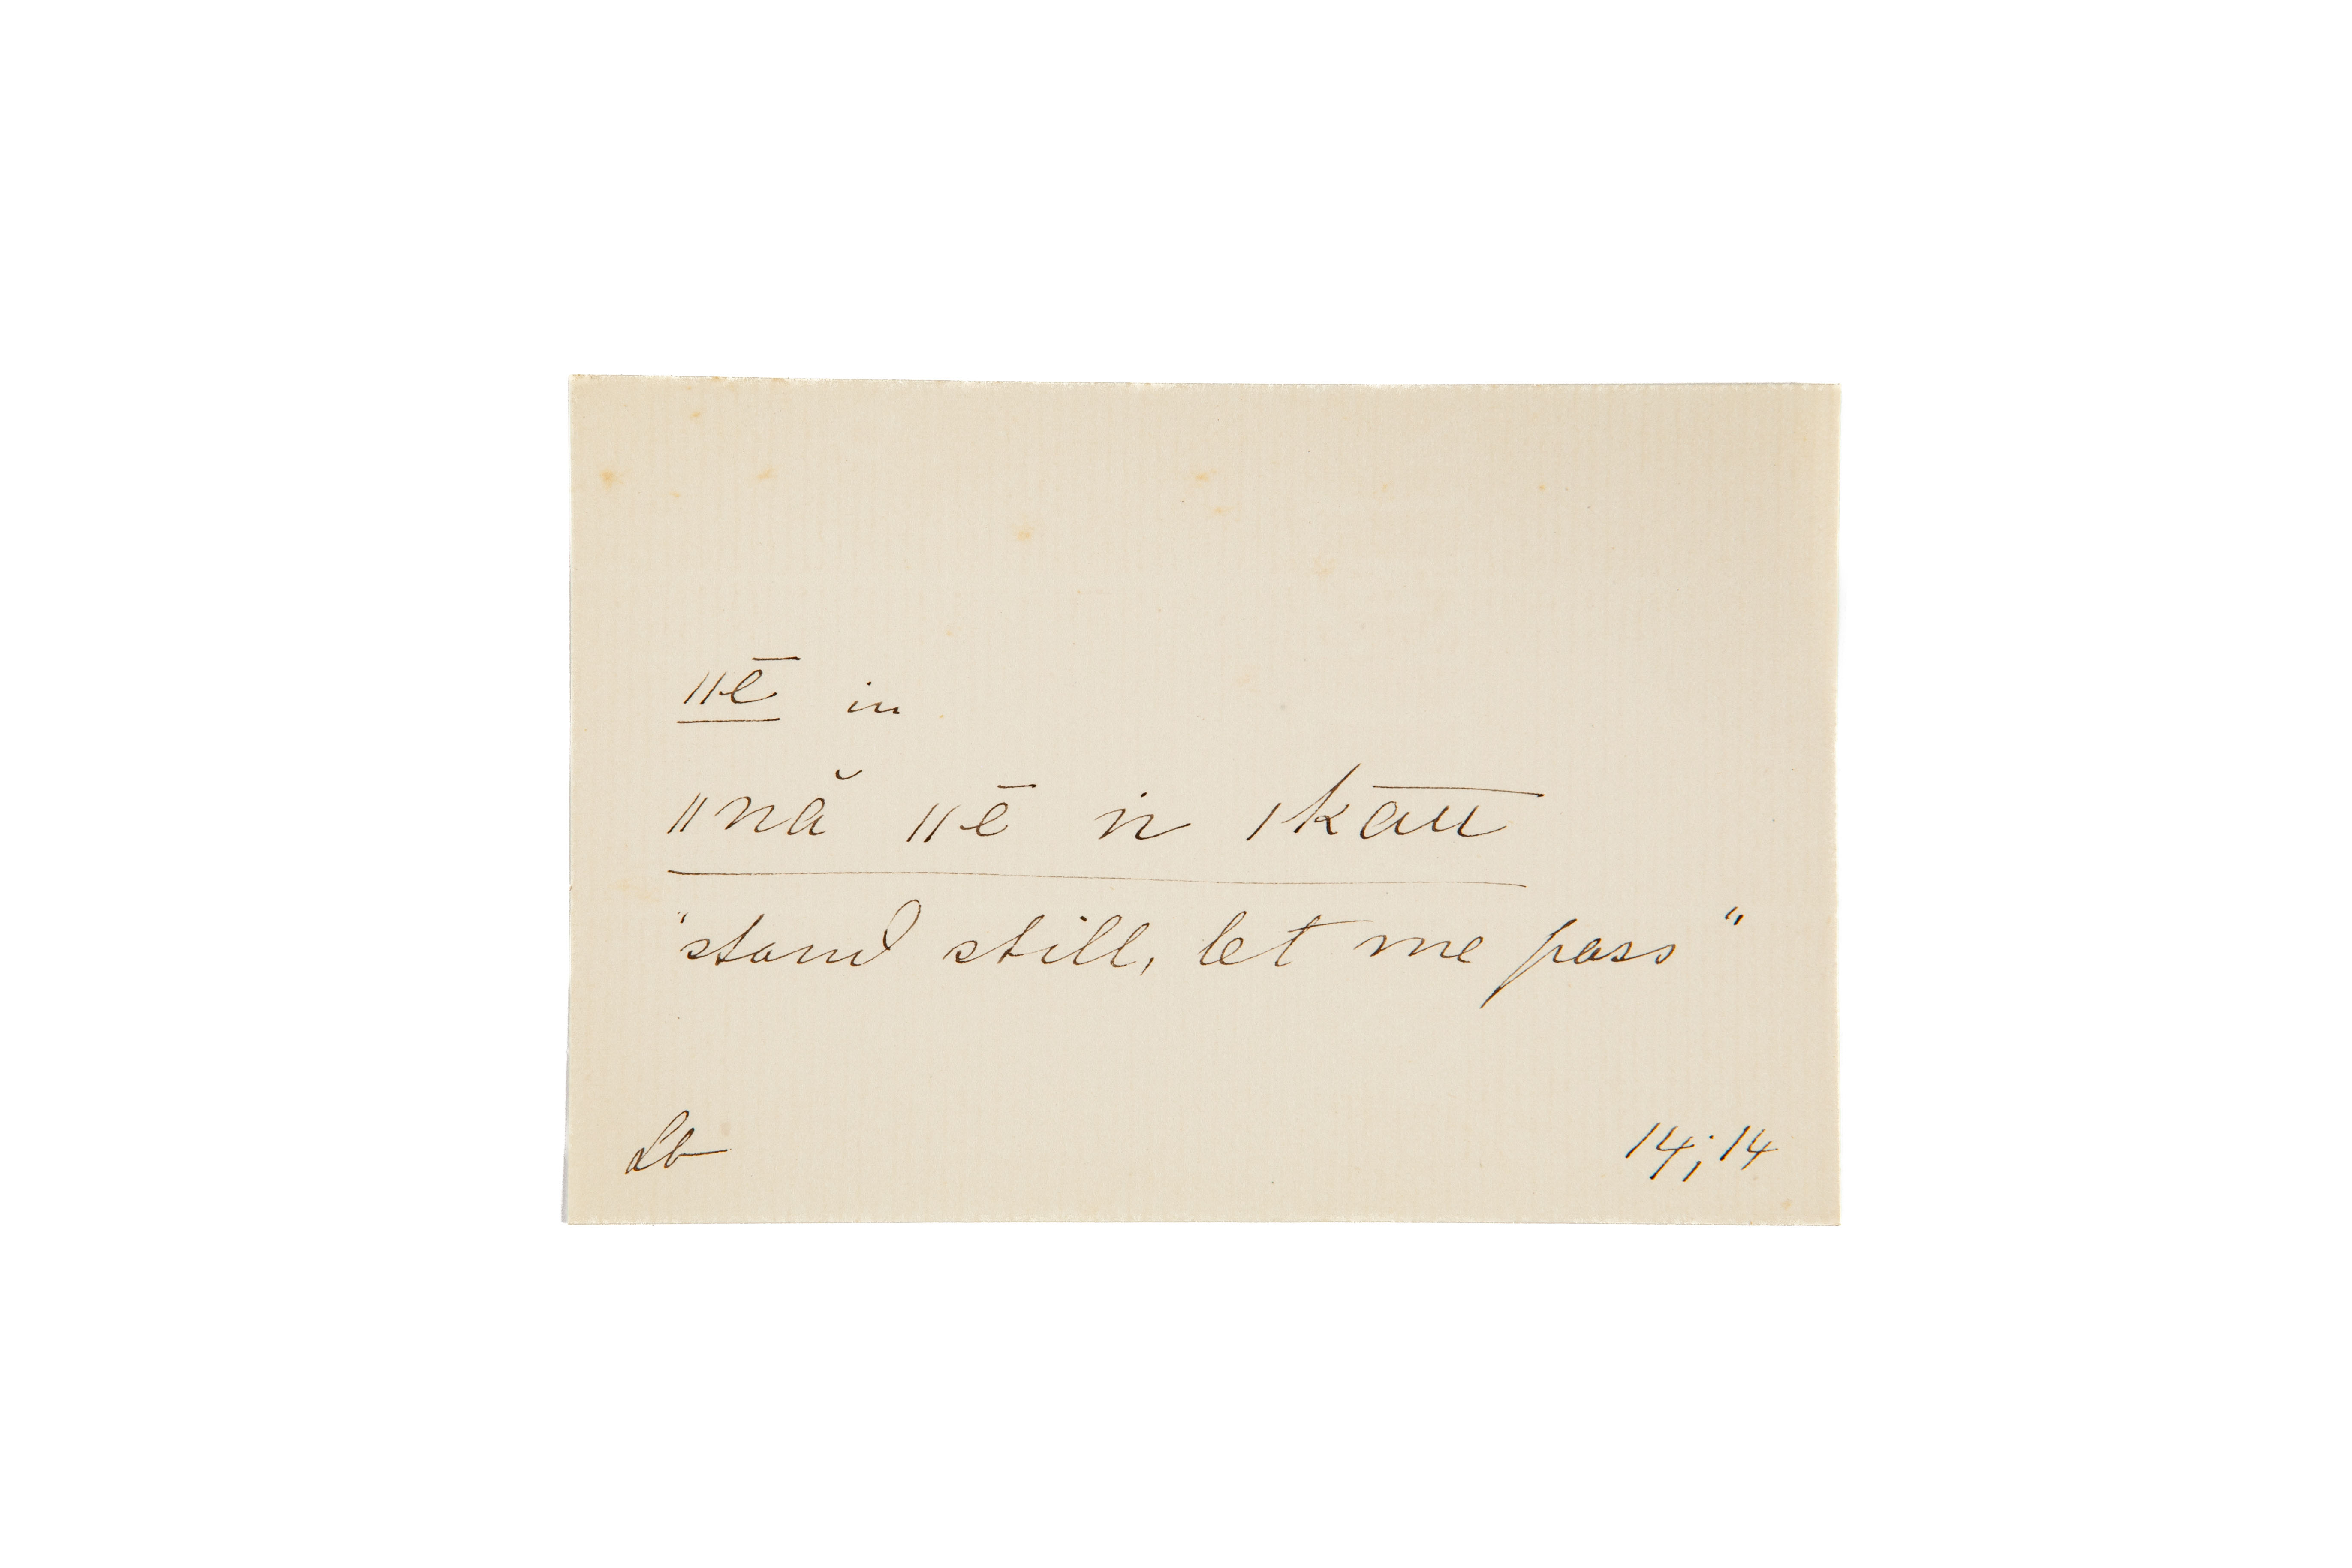 ǁē in
ǁnă ǁē n ǀkāū
"stand still, let me pass"
Lb 14;14